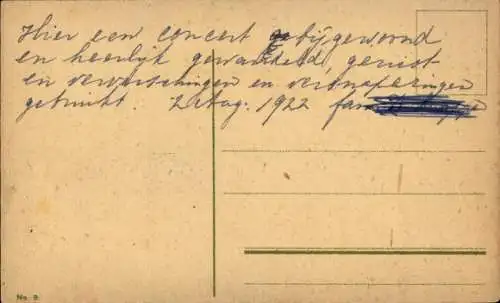 Hier een concert bijgewoond
en heerlijk gewandeld, gerust
en ververschingen en versnaperingen
gebruikt. 2 Aug: 1922 fam
No. 9